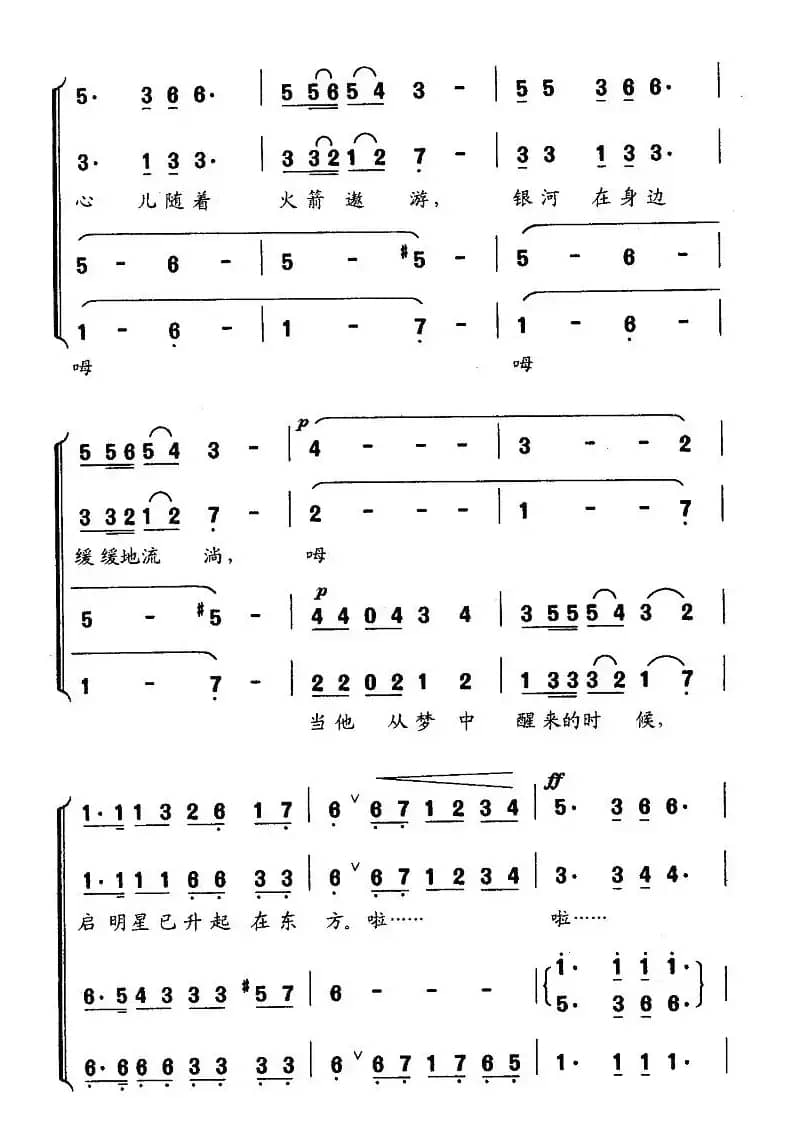 5· 3 6 6· | 5 5 6 5 4 3 - | 5 5 3 6 6· |
3· 1 3 3· | 3 3 2 1 2 7 - | 3 3 1 3 3· |
心 儿随着 火箭遨 游, 银河 在身边
5 - 6 - | 5 - #5 - | 5 - 6 - |
1 - 6 - | 1 - 7 - | 1 - 6 - |
呣 呣
5 5 6 5 4 3 - | p 4 - - - | 3 - - 2 |
3 3 2 1 2 7 - | 2 - - - | 1 - - 7 |
缓缓地流 淌, 呣
5 - #5 - | p 4 4 0 4 3 4 | 3 5 5 5 4 3 2 |
1 - 7 - | 2 2 0 2 1 2 | 1 3 3 3 2 1 7 |
当他 从梦中 醒来的时 候,
1·1 1 3 2 6 1 7 | 6 ∨ 6 7 1 2 3 4 | ff 5· 3 6 6· |
1·1 1 1 6 6 3 3 | 6 ∨ 6 7 1 2 3 4 | 3· 3 4 4· |
启明星已升起在东 方。啦…… 啦……
6·5 4 3 3 3 #5 7 | 6 - - - | { 1· 1 1 1· }
{ 5· 3 6 6· } |
6·6 6 6 3 3 3 3 | 6 ∨ 6 7 1 7 6 5 | 1· 1 1 1· |